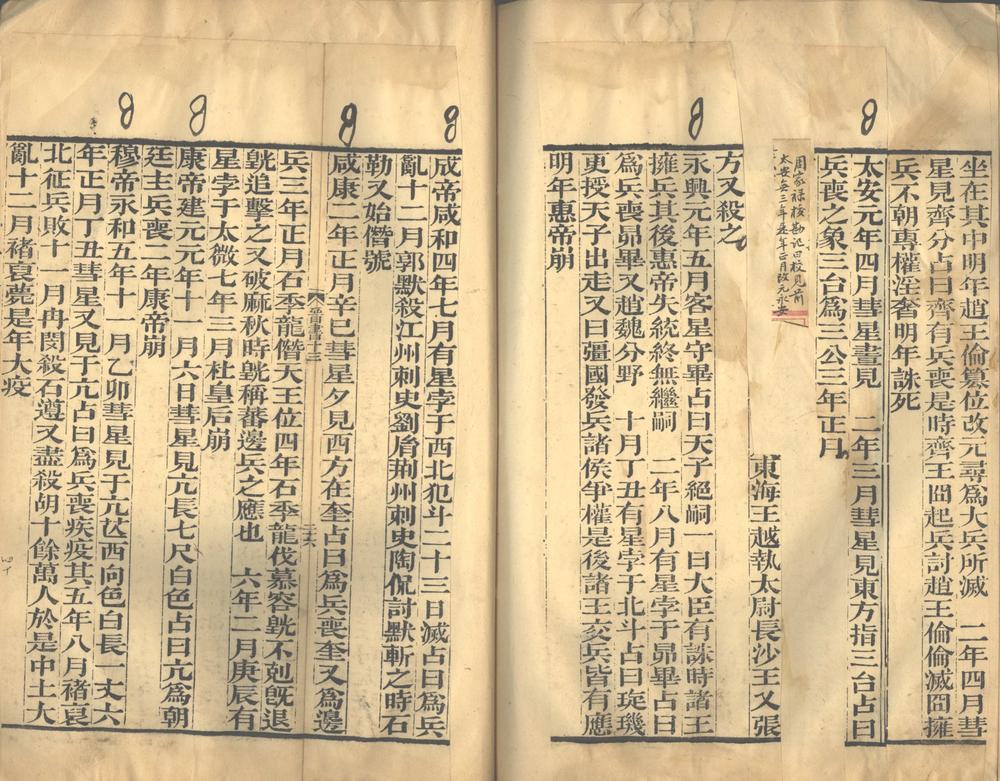 坐在其中明年趙王倫篡位改元尋爲大兵所滅　二年四月彗
星見齊分占曰齊有兵喪是時齊王冏起兵討趙王倫倫滅冏擁
兵不朝專權淫奢明年誅死
太安元年四月彗星晝見　二年三月彗星見東方指三台占曰
兵喪之象三台爲三公三年正月
周家祿校勘記曰校見前
東海王越執太尉長沙王乂張
方又殺之
永興元年五月客星守畢占曰天子絕嗣一曰大臣有誅時諸王
擁兵其後惠帝失統終無繼嗣　二年八月有星孛于昴畢占曰
爲兵喪昴畢又趙魏分野　十月丁丑有星孛于北斗占曰琁璣
更授天子出走又曰彊國發兵諸侯争權是後諸王交兵皆有應
明年惠帝崩
成帝咸和四年七月有星孛于西北犯斗二十三日滅占曰爲兵
亂十二月郭默殺江州刺史劉胤荆州刺史陶侃討默斬之時石
勒又始僭號
咸康二年正月辛巳彗星夕見西方在奎占曰爲兵喪奎又爲邊
晋書十三
二十六
兵三年正月石季龍僭天王位四年石季龍伐慕容皝不剋旣退
皝追擊之又破麻秋時皝稱蕃邊兵之應也　六年二月庚辰有
星孛于太微七年三月杜皇后崩
康帝建元元年十一月六日彗星見亢長七尺白色占曰亢爲朝
廷主兵喪二年康帝崩
穆帝永和五年十一月乙卯彗星見于亢芒西向色白長一丈六
年正月丁丑彗星又見于亢占曰爲兵喪疾疫其五年八月褚裒
北征兵敗十一月冉閔殺石遵又盡殺胡十餘萬人於是中土大
亂十二月褚裒薨是年大疫